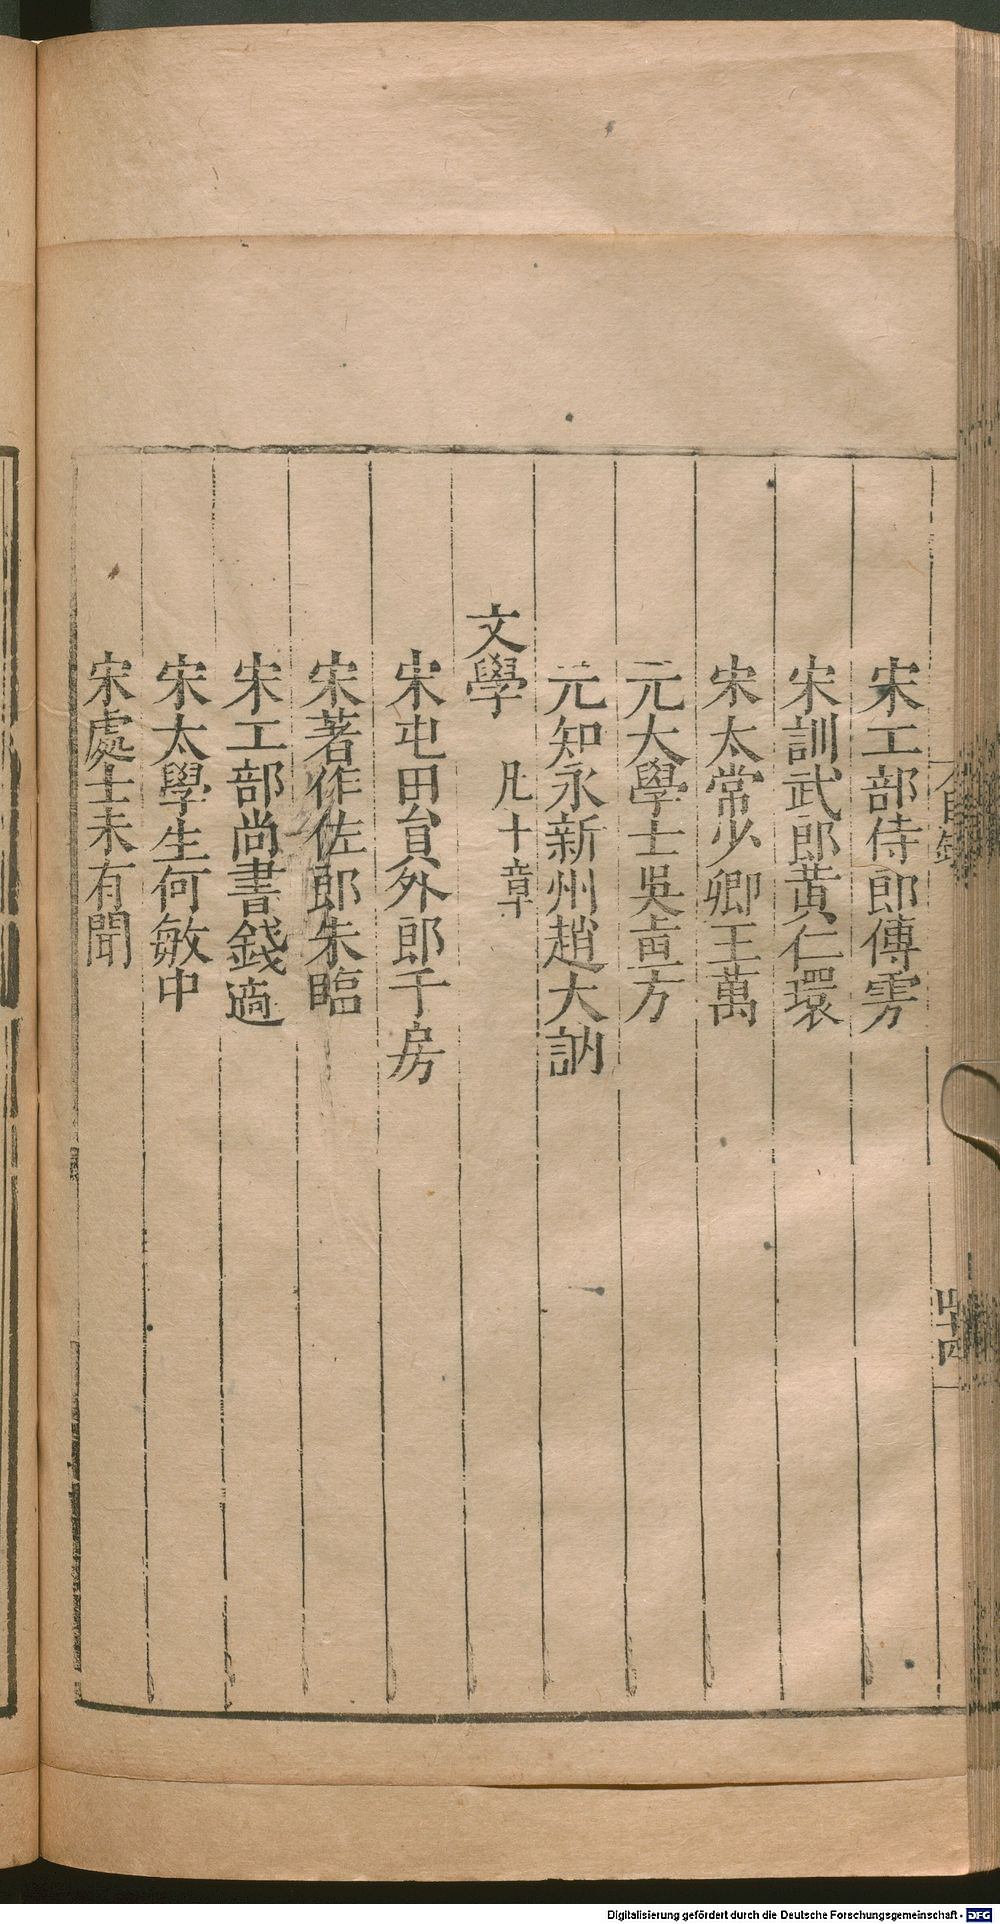 宋工部侍郎傅雱
宋訓武郎黃仁環
宋太常少卿王萬
元大學士吳直方
元知永新州趙大訥
文學 凡十章
宋屯田員外郎于房
宋著作佐郎朱臨
宋工部尚書錢遹
宋太學生何敏中
宋處士朱有聞
目錄
四
Digitalisierung gefördert durch die Deutsche Forschungsgemeinschaft - DFG